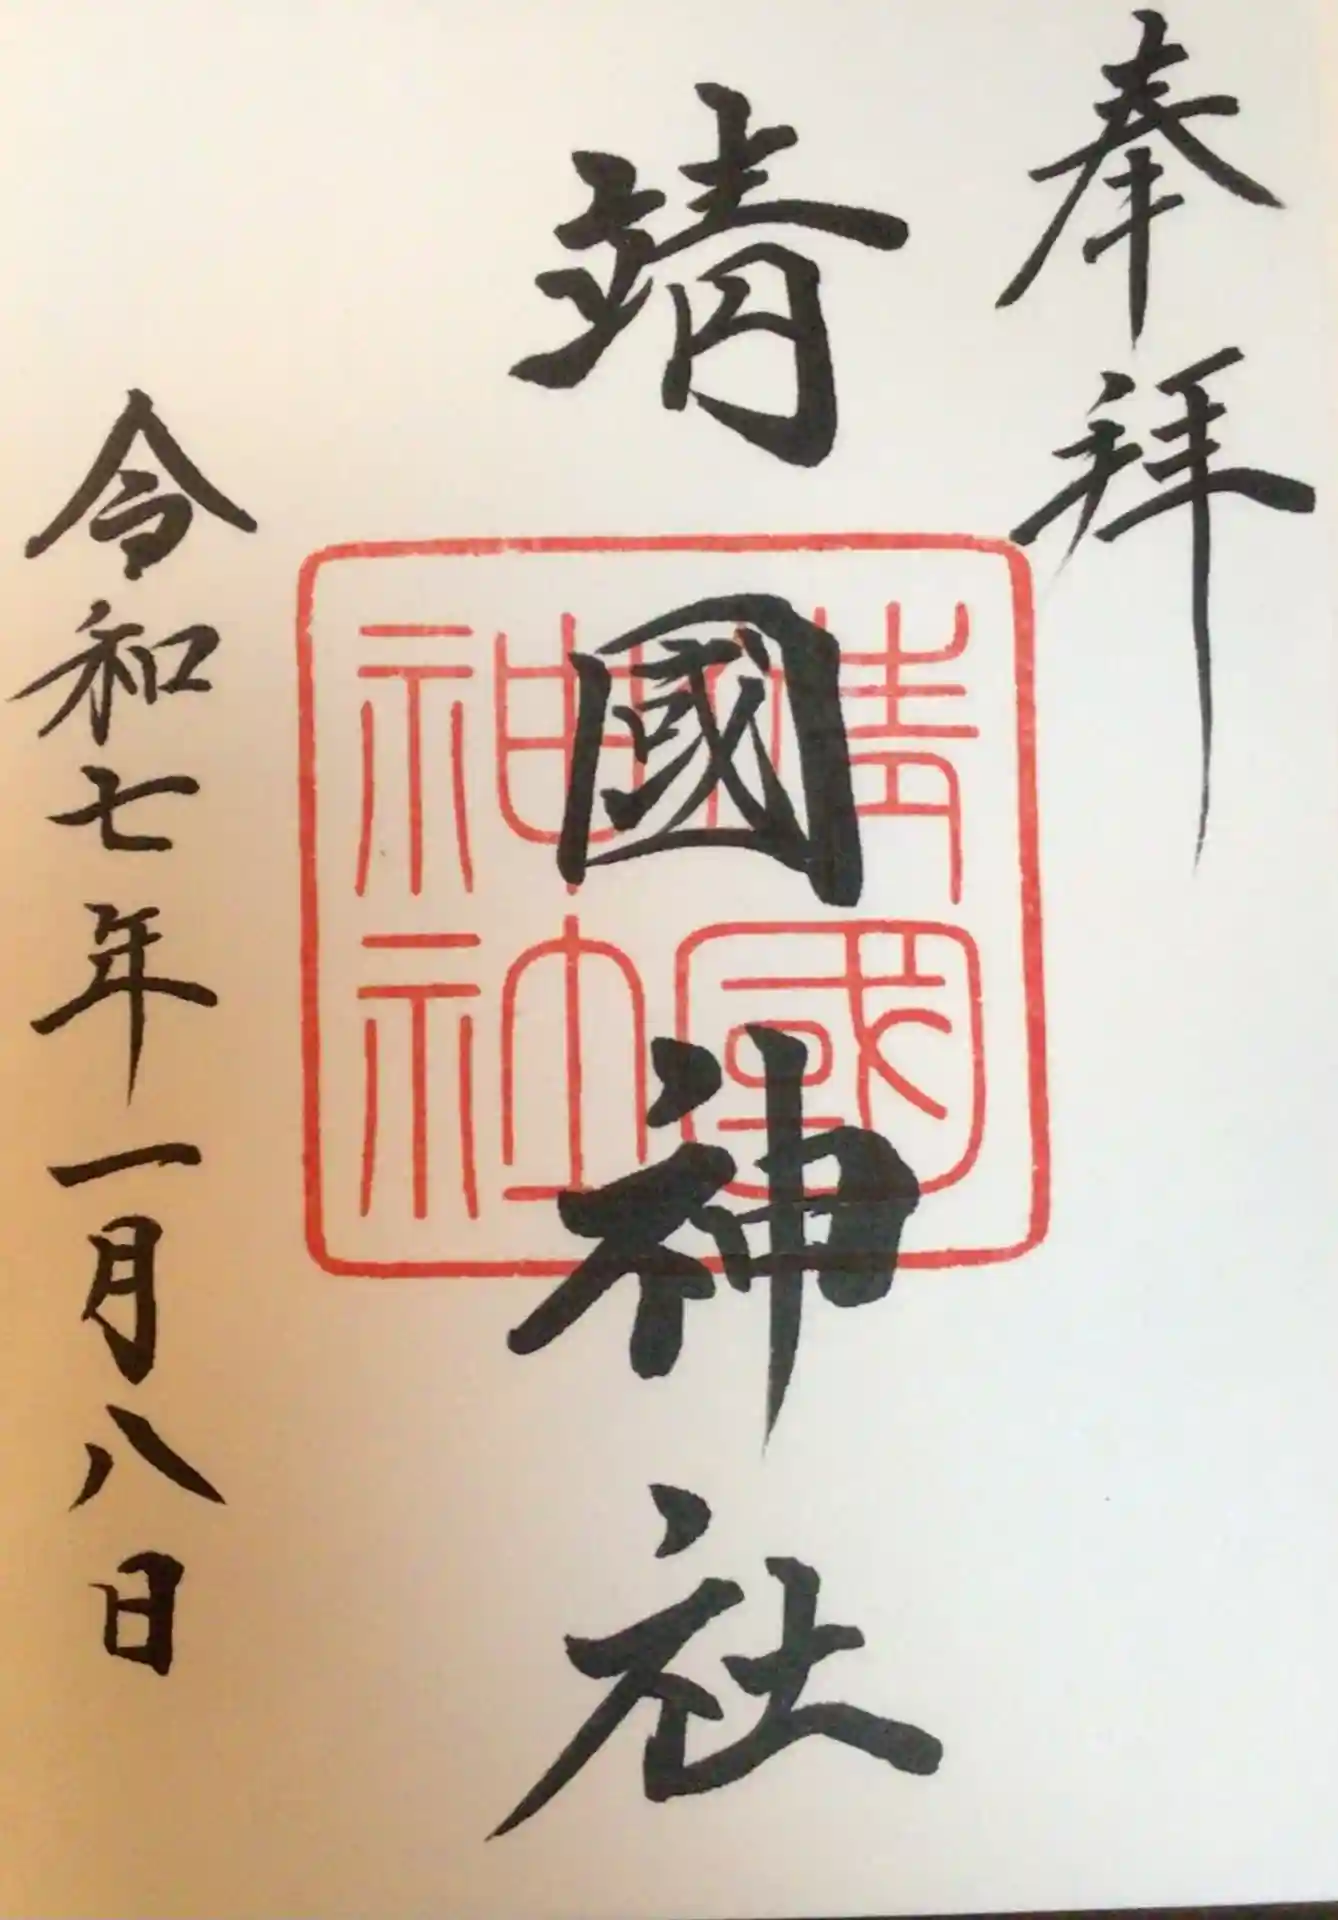 奉拜
靖國神社
靖國
神社
令和七年一月八日